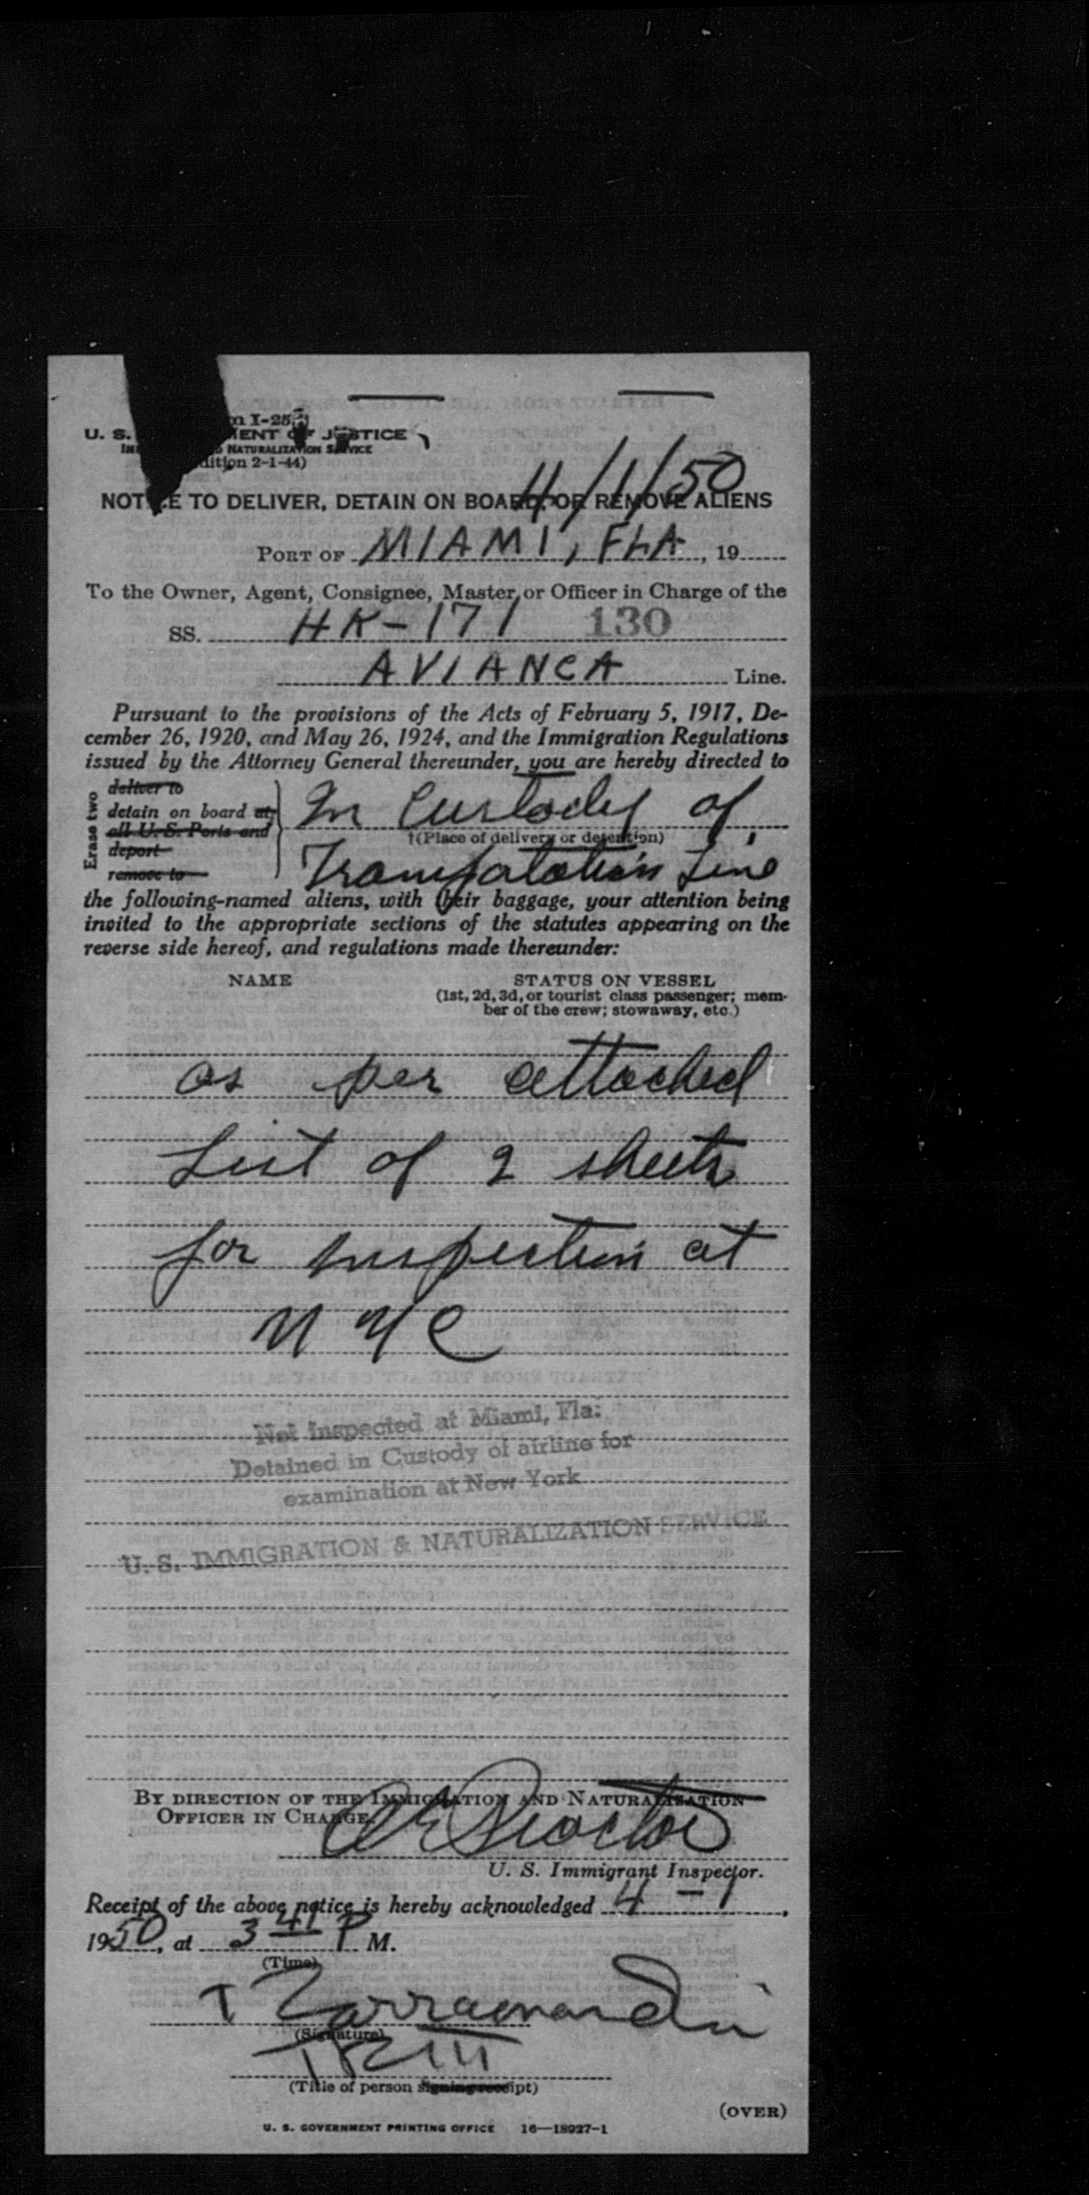 m I-25
U. S. MENT OF JUSTICE
NATURALIZATION SERVICE
dition 2-1-44)
4/1/50
NOTICE TO DELIVER, DETAIN ON BOARD, OR REMOVE ALIENS
PORT OF MIAMI, FLA, 19
To the Owner, Agent, Consignee, Master, or Officer in Charge of the
SS. HK-171 130
AVIANCA Line.
Pursuant to the provisions of the Acts of February 5, 1917, De-
cember 26, 1920, and May 26, 1924, and the Immigration Regulations
issued by the Attorney General thereunder, you are hereby directed to
Erase two
deliver to
detain on board at
all U. S. Ports and
deport
remove to
In Custody of
†(Place of delivery or detention)
Transportation Line
the following-named aliens, with their baggage, your attention being
invited to the appropriate sections of the statutes appearing on the
reverse side hereof, and regulations made thereunder:
NAME STATUS ON VESSEL
(1st, 2d, 3d, or tourist class passenger; mem-
ber of the crew; stowaway, etc.)
as per attached
List of 2 sheets
for inspection at
N Y C
Not Inspected at Miami, Fla:
Detained in Custody of airline for
examination at New York
U. S. IMMIGRATION & NATURALIZATION SERVICE
BY DIRECTION OF THE IMMIGRATION AND NATURALIZATION
OFFICER IN CHARGE.
A E Proctor
U. S. Immigrant Inspector.
Receipt of the above notice is hereby acknowledged 4-1,
1950, at 3 41 P M.
(Time)
(Signature)
(Title of person signing receipt)
(OVER)
U. S. GOVERNMENT PRINTING OFFICE 16—18927-1